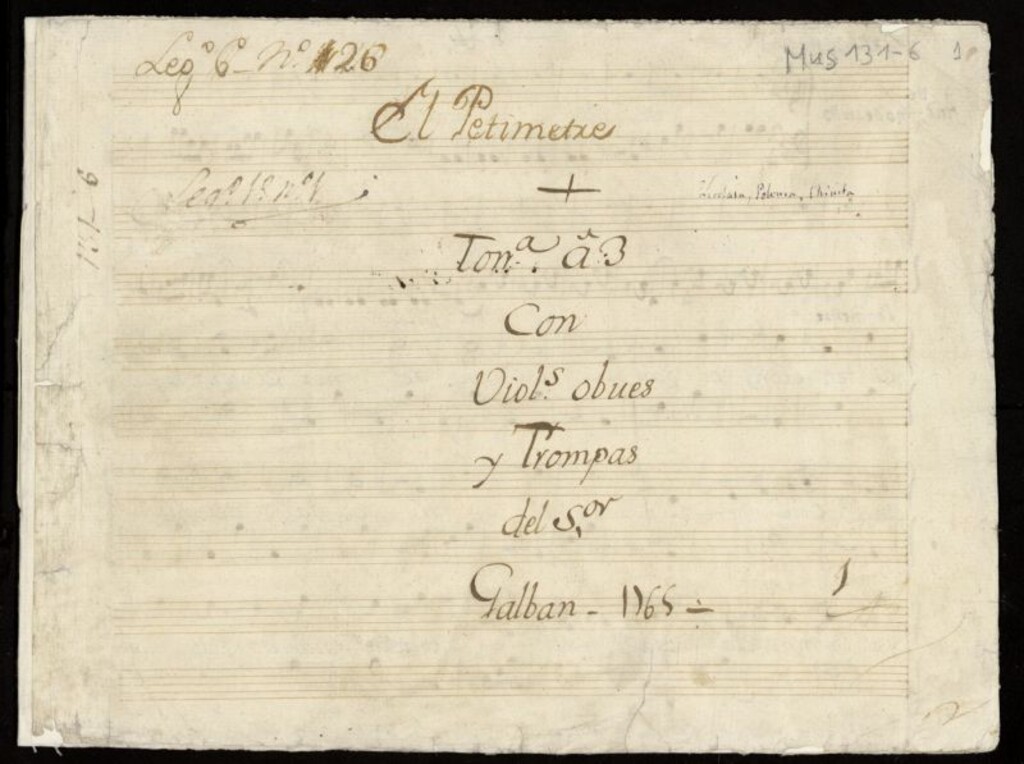 Leg.º 6º- N.º 26
Mus 131-6 1
El Petimetre
Leg.º 1º n.º 1
+
Polonia, Chinita
131-6
Ton.ª â 3
Con
Viol.s obues
y Trompas
del S.or
Galban - 1765
1